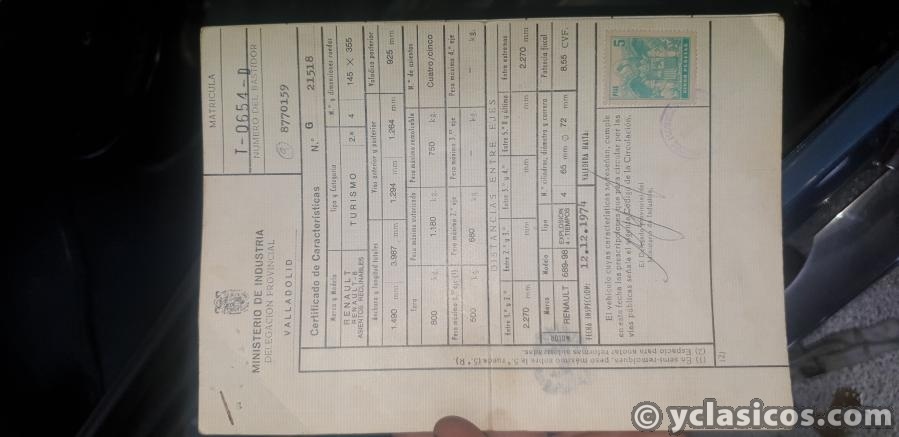 MINISTERIO DE INDUSTRIA
DELEGACION PROVINCIAL
VALLADOLID
MATRICULA
T-0654-D
NUMERO DEL BASTIDOR
8770159
Certificado de Características N.º G 21518
Marca y Modelo Tipo y Categoría N.º y dimensiones ruedas
RENAULT
RENAULT-6 TURISMO 2.ª 4 145 X 355
ASIENTOS RECLINABLES
Anchura y longitud totales Vías anterior y posterior Voladizo posterior
1.490 mm 3.987 mm 1.294 mm 1.264 mm 925 mm
Tara Peso máximo autorizado Peso máximo remolcable N.º de asientos
800 kg. 1.180 kg. 750 kg. Cuatro/cinco
Peso máximo 1.er eje (1) Peso máximo 2.º eje Peso máximo 3.er eje Peso máximo 4.º eje
500 kg. 680 kg. — kg. — kg.
DISTANCIAS ENTRE EJES
Entre 1.º y 2.º Entre 2.º y 3.º Entre 3.º y 4.º Entre extremos
2.270 mm mm mm mm 2.270 mm
MOTOR Marca Modelo Tipo N.º cilindros, diámetro y carrera Potencia fiscal
RENAULT 689-98 EXPLOSION 4-TIEMPOS 4 65 mm ∅ 72 mm 8,55 CVF.
FECHA INSPECCION: 12.12.1974 VALEDERA HASTA:
El vehículo cuyas características se reseñan, cumple
en esta fecha las prescripciones que para circular por las
vías públicas señala el vigente Código de la Circulación.
El Delegado Provincial del
Ministerio de Industria,
5
PTAS
CINCO PESETAS
(1) En semi-remolques, peso máximo sobre la 5.ª rueda (5.ª R)
(2) Espacio para anotar reformas autorizadas.
(2)
© yclasicos.com